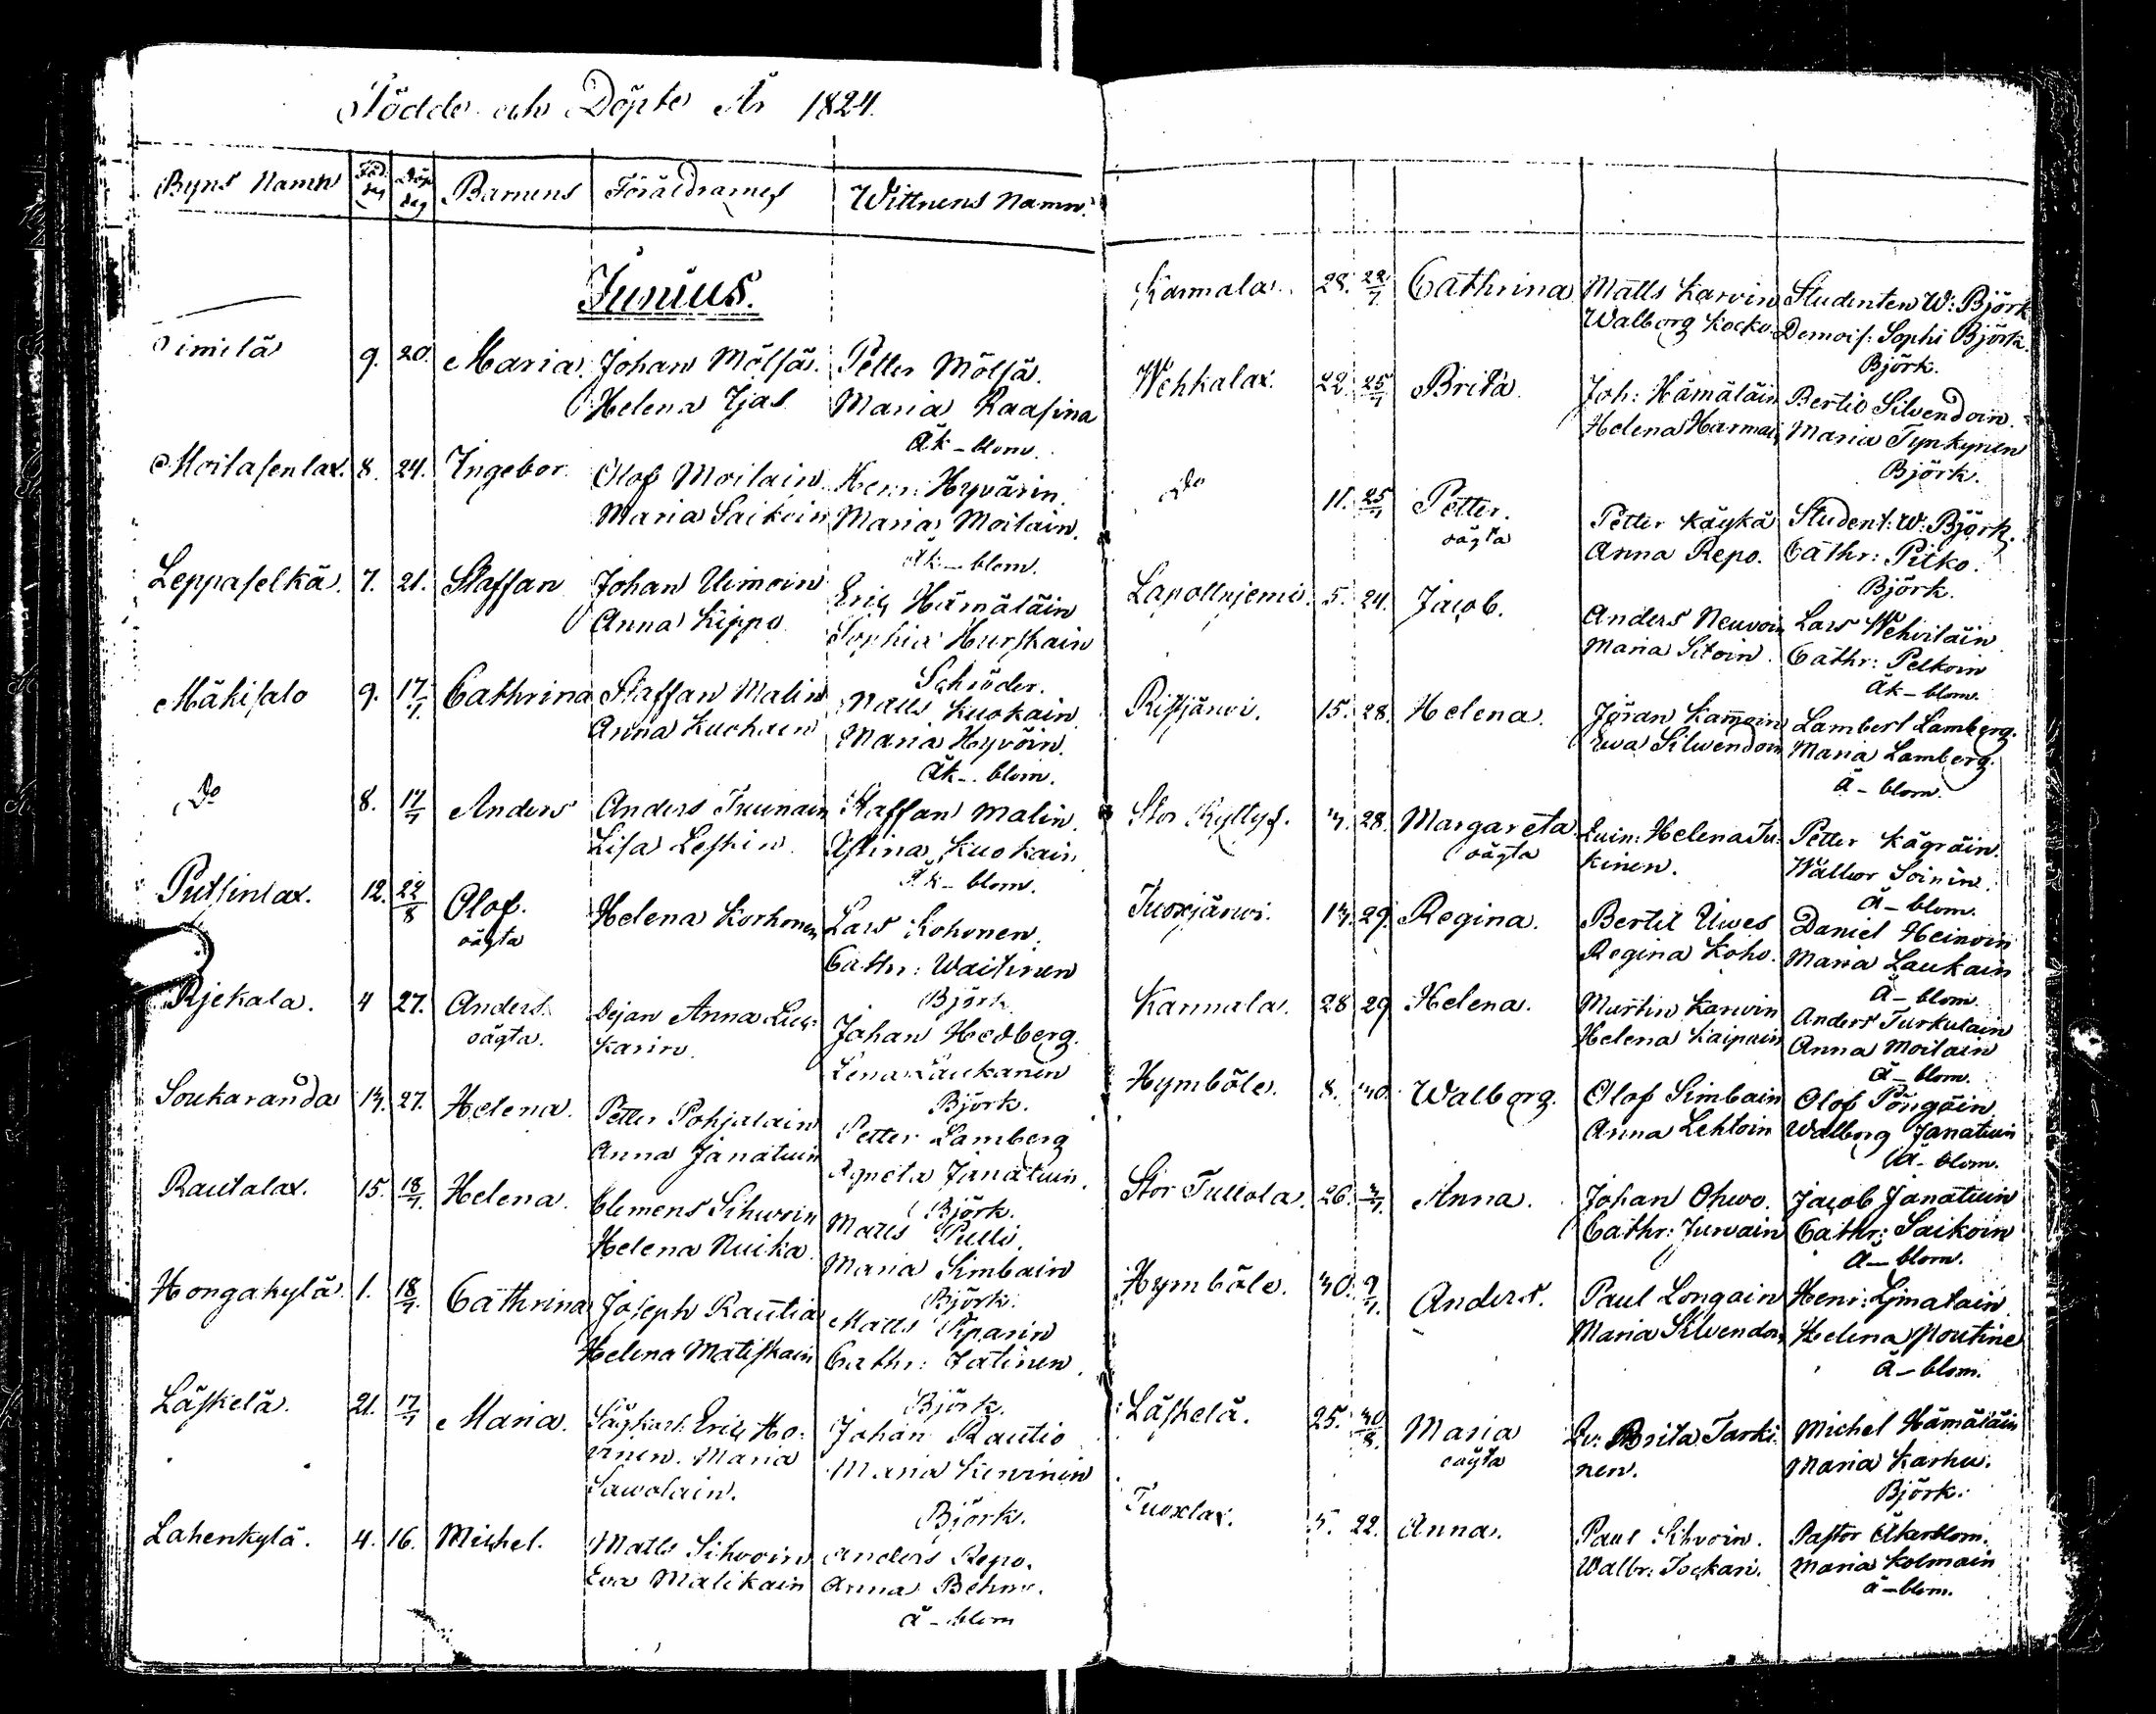 Födde och Döpte År 1824.
Byns Namn Föd. dag Döp dag Barnens Föräldrarnes Wittnens Namn.
Junius.
9. 20. Maria. Johan Mölsä. Petter Mölsä.
Helena Ijas Maria Raasina
Åk-blom.
Moilasenlax. 8. 24. Ingebor. Olof Moilain Henr: Hyvärin.
Maria Saikoin Maria Moilain.
Åk-blom.
Leppäselkä. 7. 21. Staffan Johan Uimoin Eric Hämäläin
Anna Kippo Sophia Hurskain
Schröder.
Mäkisalo 9. 17/7. Cathrina Staffan Malin Matts Kuokain
Anna Kuokain Maria Hyvöin.
Åk-blom.
Do 8. 17/7 Anders Anders Truunain Staffan Malin.
Lisa Leskin Stina Kuokain
Åk-blom.
Putsinlax. 12. 22/8 Olof. Helena Korhonen Lars Kohonen.
oägta Cathr: Waitinen
Björk
Rjekala. 4 27. Anders. Pejan Anna Luu- Johan Hedberg.
oägta. karin Lena Laukanen
Björk.
Soukaranda 13. 27. Helena. Petter Pohjalain Petter Lamberg
Anna Janatuin Agneta Janatuin.
Björk.
Rautalax. 15. 18/7. Helena. Clemens Sihvoin Matts Pulli
Helena Nuika Maria Simbain
Björk.
Hongakylä. 1. 18/7. Cathrina Joseph Rautia Matts Piparin
Helena Matiskain Cathr: Jatinen
Björk.
Läskelä. 21. 17/7 Maria. Sågkarl: Eric Ho- Johan Rautio
vinen. Maria Maria Kervinin
Sawolain. Björk.
Lahenkylä. 4. 16. Michel. Matts Sihvoin Anders Repo.
Eva Malikain Anna Behm.
å-blom
Karmala. 28. 22/7 Cathrina Matts Karvin Studenten W: Björk
Walborg Kocko Demois: Sophi Björk.
Björk.
Wehkalax. 22. 25/7 Brita Joh: Hämäläin Bertil Silvendoin.
Helena Harmai Maria Tynkynen
Björk.
Do 11. 25/7 Petter. Petter Käykä Student: W: Björk.
oägta Anna Repo. Cathr: Pitko.
Björk.
Lapollnjemi. 5. 24. Jacob. Anders Neuvoin Lars Wehviläin
Maria Sitoin. Cathr: Pelkoin
åk-blom.
Ristjärvi. 15. 28. Helena. Jöran Kamoin Lambert Lamberg.
Ewa Silwendoin Maria Lamberg.
å-blom.
Stor Ryttys. 3. 28. Margareta Quin: Helena Tu- Petter Kägräin.
oägta kinen. Walbor Soinin.
å-blom.
Tuoxjärwi. 13. 29. Regina. Bertil Uives Daniel Heinoin
Regina Koho. Maria Laukain
å-blom.
Karmala. 28 29 Helena. Martin Karvin Anders Turkulain
Helena Kaipain Anna Moilain
å-blom.
Hymböle. 8. 30. Walborg. Olof Simbain Olof Pöngöin
Anna Lehtoin Walborg Janatuin
å-blom.
Stor Tullola. 26. 4/7. Anna. Johan Ohwo. Jacob Janatuin
Cathr: Jurvain Cathr: Saikoin
å-blom.
Hymböle. 30. 9/7. Anders. Paul Longain Henr: Ljmatain
Maria Silvendoin Helena Poutine
å-blom.
Läskelä. 25. 30/8. Maria Qv: Brita Tarki- Michel Hämäläin
oägta nen. Maria Karhu.
Björk.
Tuoxlax. 5. 22. Anna. Paul Sihvoin. Pastor Åkerblom.
Walbr: Tockari. Maria Kolmain
å-blom.